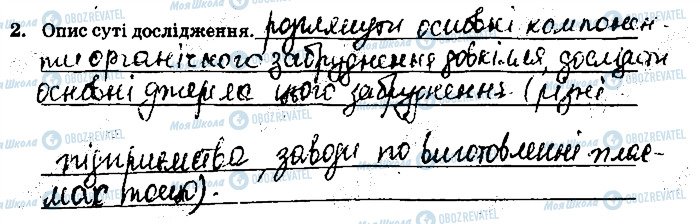 2. Опис суті дослідження. розглянути основні компонен-
ти органічного забруднення довкілля, дослідити
основні джерела цього забруднення. (різні
підприємства, заводи по виготовленні плас-
мас тощо).